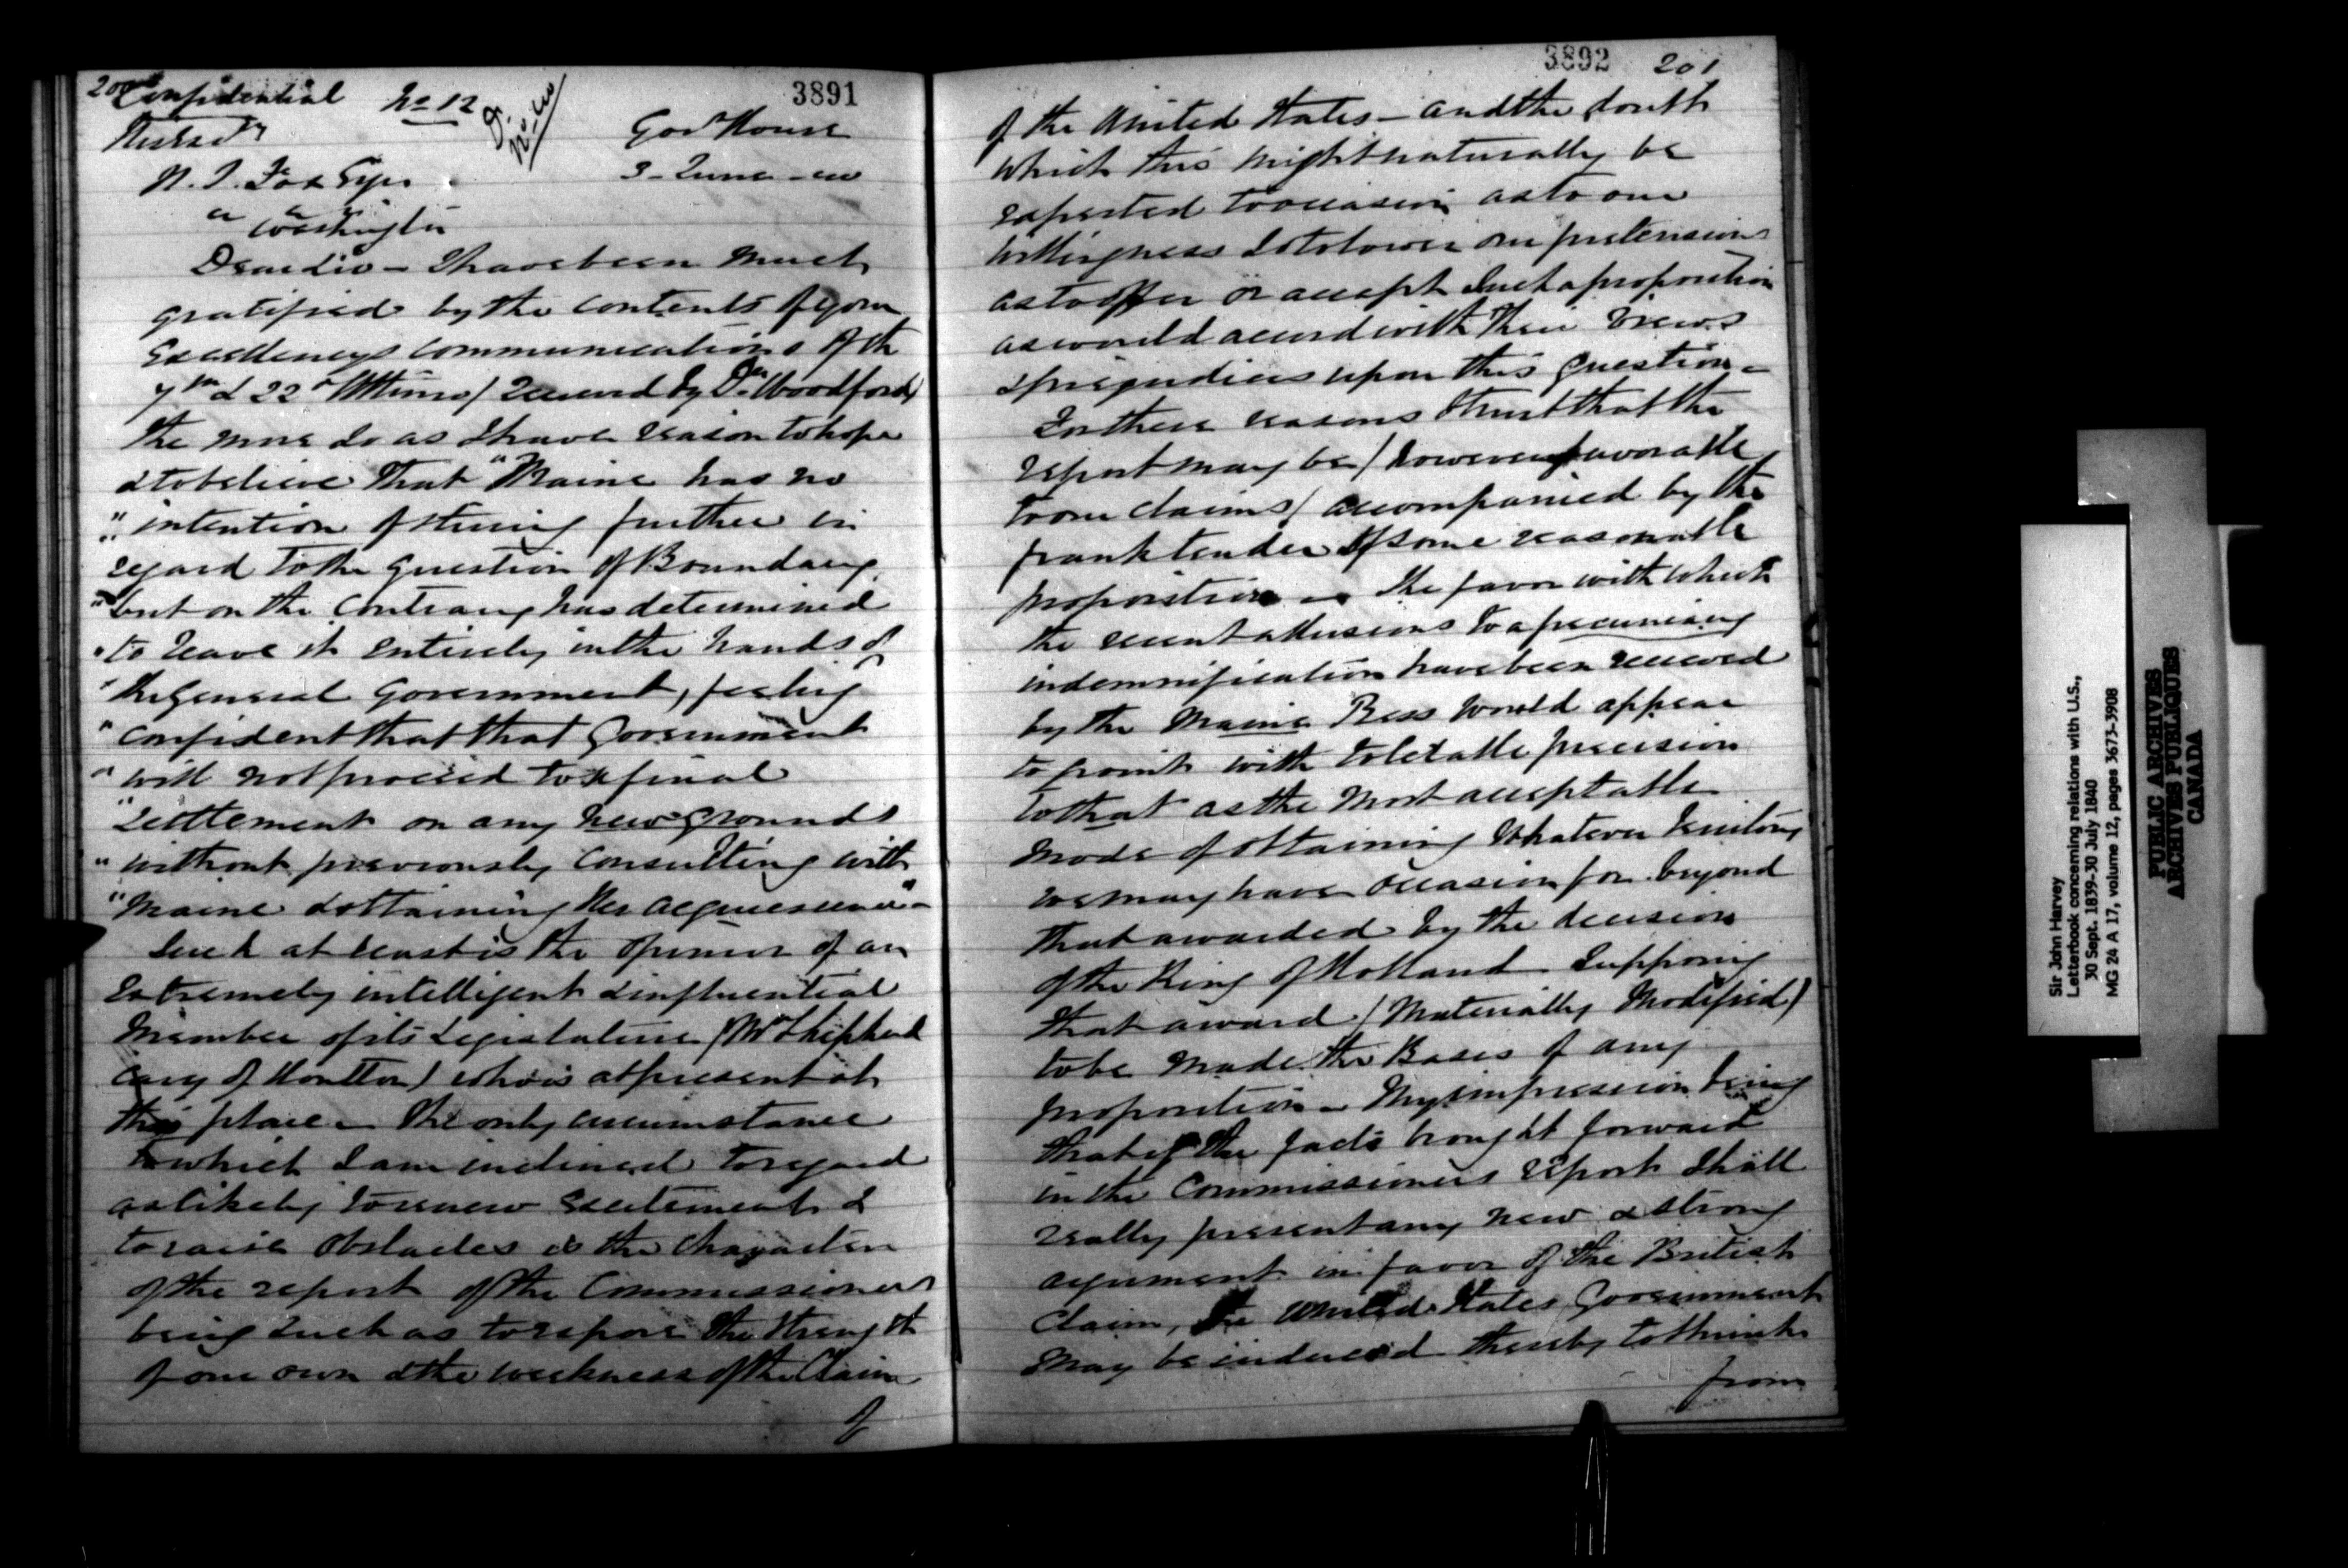 200
Confidential No 12
3891
Gov House
H. S. Fox Esqr
3 - June - 40
Washington
Dear Sir - I have been much
gratified by the contents of your
Excellencys communications of the
7th & 22d Ultimo / received by Dr Woodforde/
the more so as I have reason to hope
& to believe that "Maine has no
" intention of stirring further in
regard to the question of Boundary,
" but on the contrary has determined
" to leave it entirely in the hands of
" the General Government, feeling
" confident that that Government
" will not proceed to a final
" settlement on any new grounds
" without previously consulting with
" Maine & obtaining her acquiescence" -
Such at least is the opinion of an
Extremely intelligent & influential
Member of its Legislature / Mr Shepherd
Cary of Houlton / who is at present at
this place - The only circumstance
to which I am inclined to regard
as likely to renew excitement &
to raise obstacles is the character
of the report of the Commissioners
being such as to expose the strength
of our own & the weakness of the Claim
of
3892 201
of the United States - and the doubt
which this might naturally be
expected to occasion as to our
willingness so to lower our pretensions
as to offer or accept such a proposition
as would accord with their views
& prejudices upon this question -
For these reasons I trust that the
report may be / however favorable
to our claims / accompanied by the
frank tender of some reasonable
proposition - The favor with which
the recent allusions to a pecuniary
indemnification have been received
by the Maine Press would appear
to point with tolerable precision
to that as the most acceptable
mode of obtaining whatever territory
we may have occasion for beyond
that awarded by the decision
of the King of Holland Supposing
that award / Materially Modified /
to be made the Basis of any
proposition - My impression being
that if the facts brought forward
in the Commissioners report shall
really present any new & strong
argument in favor of the British
Claim, the United States Government
may be induced thereby to shrink
from
Sir John Harvey
Letterbook concerning relations with U.S.,
30 Sept. 1839-30 July 1840
MG 24 A 17, volume 12, pages 3673-3908
PUBLIC ARCHIVES
ARCHIVES PUBLIQUES
CANADA